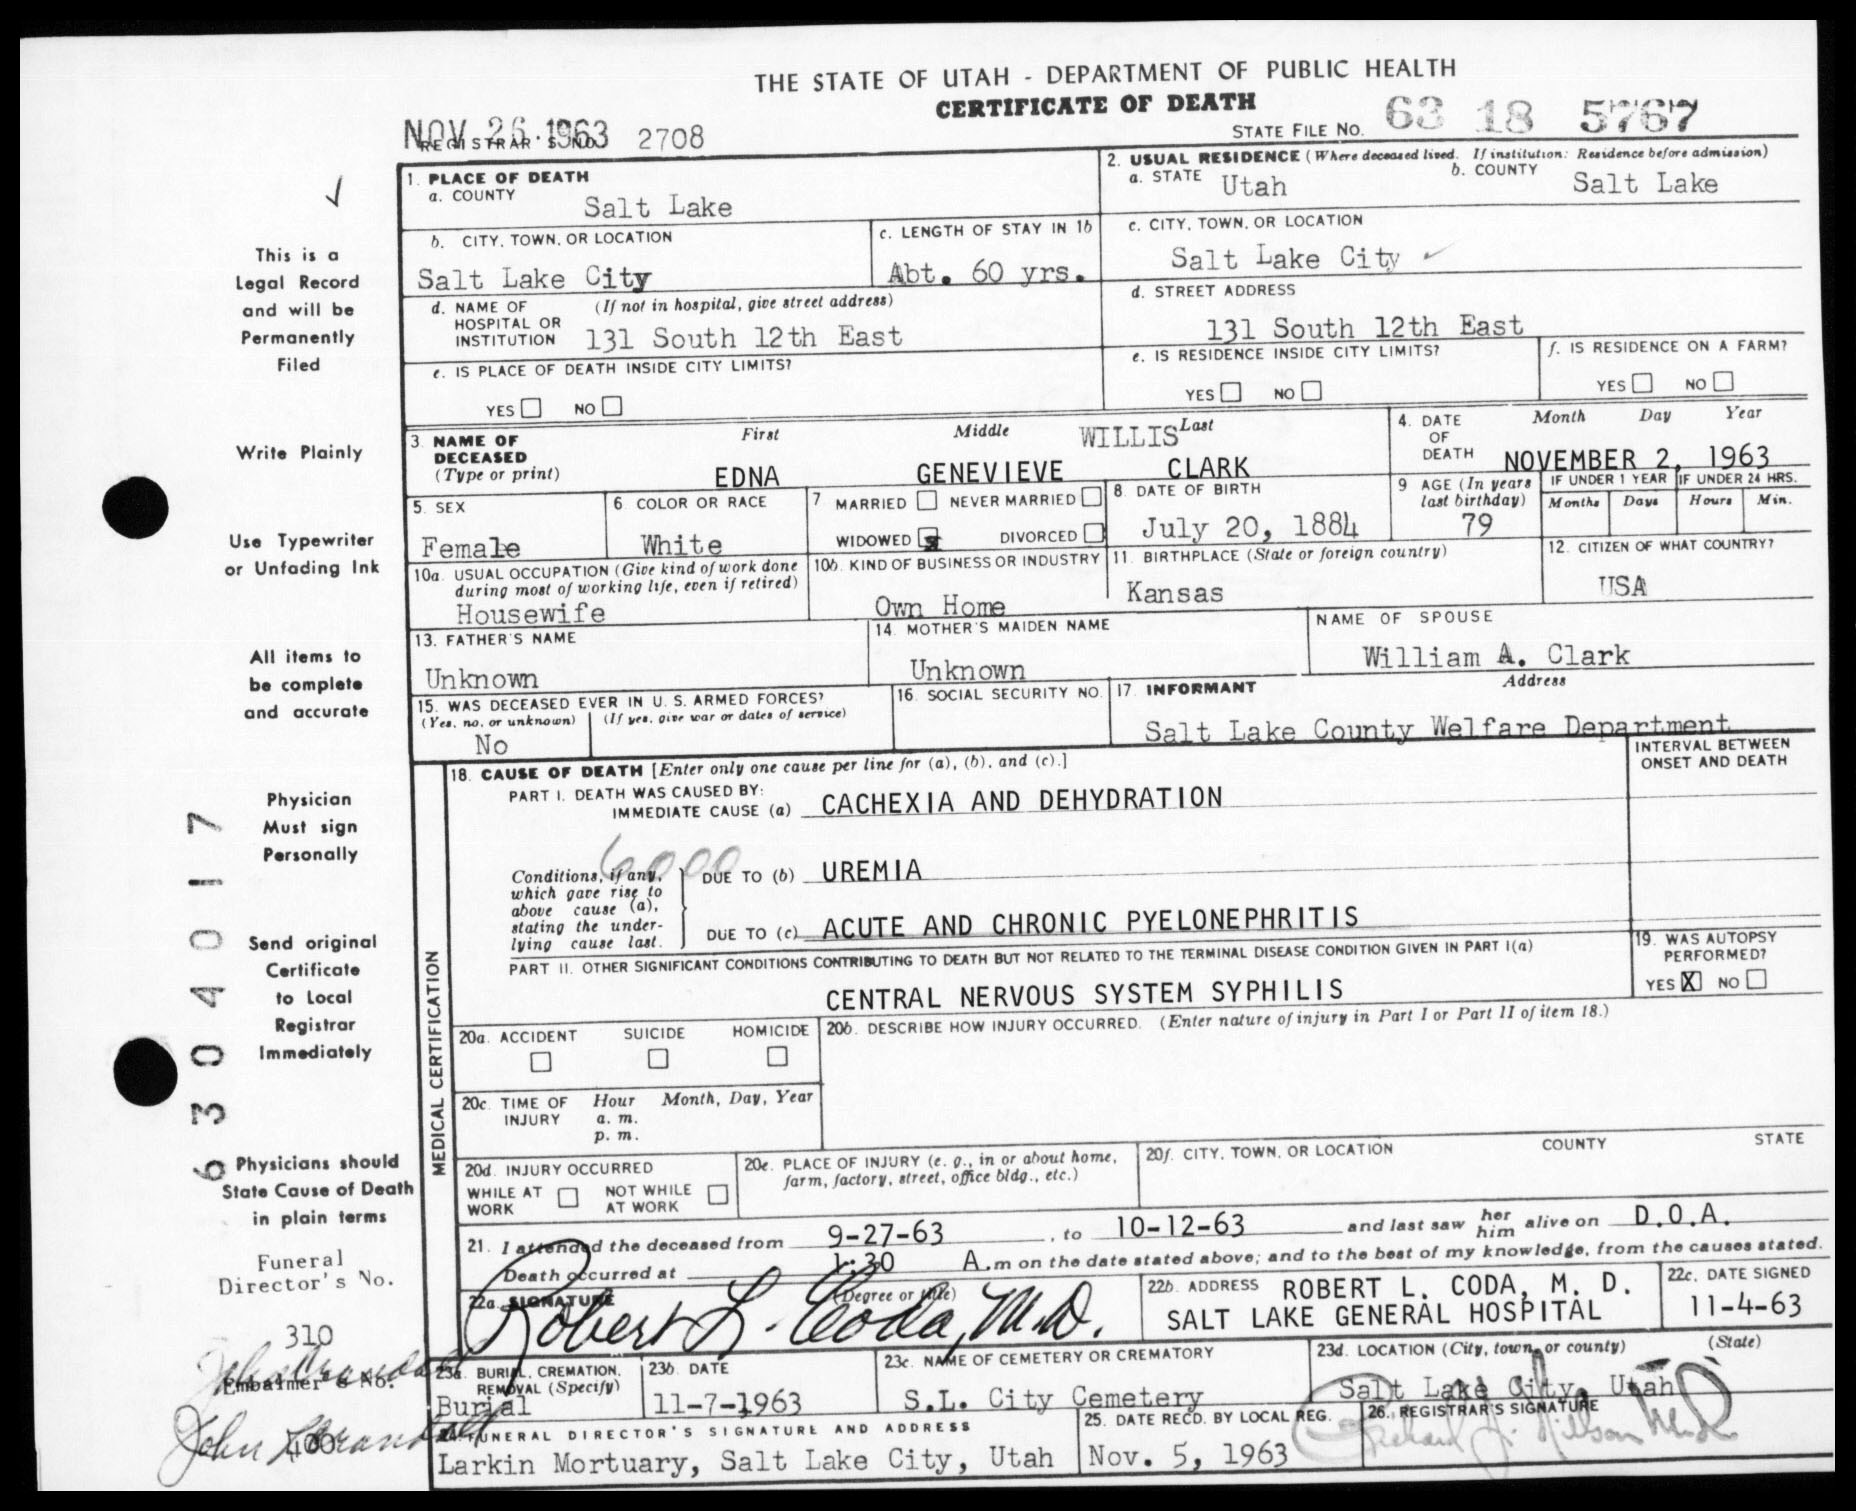 THE STATE OF UTAH - DEPARTMENT OF PUBLIC HEALTH
CERTIFICATE OF DEATH
NOV 26 1963
REGISTRAR'S NO. 2708
STATE FILE NO. 63 18 5767
1. PLACE OF DEATH
a. COUNTY
Salt Lake
2. USUAL RESIDENCE (Where deceased lived. If institution: Residence before admission)
a. STATE Utah
b. COUNTY Salt Lake
b. CITY, TOWN, OR LOCATION
Salt Lake City
c. LENGTH OF STAY IN 1b
Abt. 60 yrs.
c. CITY, TOWN, OR LOCATION
Salt Lake City
d. NAME OF HOSPITAL OR INSTITUTION
(If not in hospital, give street address)
131 South 12th East
d. STREET ADDRESS
131 South 12th East
e. IS PLACE OF DEATH INSIDE CITY LIMITS?
YES NO
e. IS RESIDENCE INSIDE CITY LIMITS?
YES NO
f. IS RESIDENCE ON A FARM?
YES NO
3. NAME OF DECEASED
(Type or print)
First Middle Last
WILLIS
EDNA GENEVIEVE CLARK
4. DATE OF DEATH
Month Day Year
NOVEMBER 2, 1963
5. SEX
Female
6 COLOR OR RACE
White
7 MARRIED NEVER MARRIED
WIDOWED X DIVORCED
8 DATE OF BIRTH
July 20, 1884
9 AGE (In years last birthday)
79
IF UNDER 1 YEAR
Months Days
IF UNDER 24 HRS.
Hours Min.
10a. USUAL OCCUPATION (Give kind of work done during most of working life, even if retired)
Housewife
10b. KIND OF BUSINESS OR INDUSTRY
Own Home
11. BIRTHPLACE (State or foreign country)
Kansas
12. CITIZEN OF WHAT COUNTRY?
USA
13. FATHER'S NAME
Unknown
14. MOTHER'S MAIDEN NAME
Unknown
NAME OF SPOUSE
William A. Clark
15. WAS DECEASED EVER IN U. S. ARMED FORCES?
(Yes, no, or unknown) (If yes, give war or dates of service)
No
16. SOCIAL SECURITY NO.
17. INFORMANT Address
Salt Lake County Welfare Department
MEDICAL CERTIFICATION
18. CAUSE OF DEATH [Enter only one cause per line for (a), (b), and (c).]
INTERVAL BETWEEN ONSET AND DEATH
PART I. DEATH WAS CAUSED BY:
IMMEDIATE CAUSE (a) CACHEXIA AND DEHYDRATION
6000
Conditions, if any, which gave rise to above cause (a), stating the underlying cause last.
DUE TO (b) UREMIA
DUE TO (c) ACUTE AND CHRONIC PYELONEPHRITIS
PART II. OTHER SIGNIFICANT CONDITIONS CONTRIBUTING TO DEATH BUT NOT RELATED TO THE TERMINAL DISEASE CONDITION GIVEN IN PART I(a)
CENTRAL NERVOUS SYSTEM SYPHILIS
19. WAS AUTOPSY PERFORMED?
YES X NO
20a. ACCIDENT SUICIDE HOMICIDE
20b. DESCRIBE HOW INJURY OCCURRED. (Enter nature of injury in Part I or Part II of item 18.)
20c. TIME OF INJURY
Hour Month, Day, Year
a. m.
p. m.
20d. INJURY OCCURRED
WHILE AT WORK NOT WHILE AT WORK
20e. PLACE OF INJURY (e. g., in or about home, farm, factory, street, office bldg., etc.)
20f. CITY, TOWN, OR LOCATION COUNTY STATE
21. I attended the deceased from 9-27-63, to 10-12-63 and last saw her him alive on D.O.A.
Death occurred at 1:30 A.m on the date stated above; and to the best of my knowledge, from the causes stated.
22a. SIGNATURE (Degree or title)
Robert L. Coda, M.D.
22b. ADDRESS ROBERT L. CODA, M. D.
SALT LAKE GENERAL HOSPITAL
22c. DATE SIGNED
11-4-63
23a. BURIAL, CREMATION, REMOVAL (Specify)
Burial
23b. DATE
11-7-1963
23c. NAME OF CEMETERY OR CREMATORY
S.L. City Cemetery
23d. LOCATION (City, town, or county) (State)
Salt Lake City, Utah
24. FUNERAL DIRECTOR'S SIGNATURE AND ADDRESS
Larkin Mortuary, Salt Lake City, Utah
25. DATE RECD. BY LOCAL REG.
Nov. 5, 1963
26. REGISTRAR'S SIGNATURE
This is a
Legal Record
and will be
Permanently
Filed
Write Plainly
Use Typewriter
or Unfading Ink
All items to
be complete
and accurate
Physician
Must sign
Personally
Send original
Certificate
to Local
Registrar
Immediately
Physicians should
State Cause of Death
in plain terms
6304017
Funeral
Director's No.
310
Embalmer's No.
400